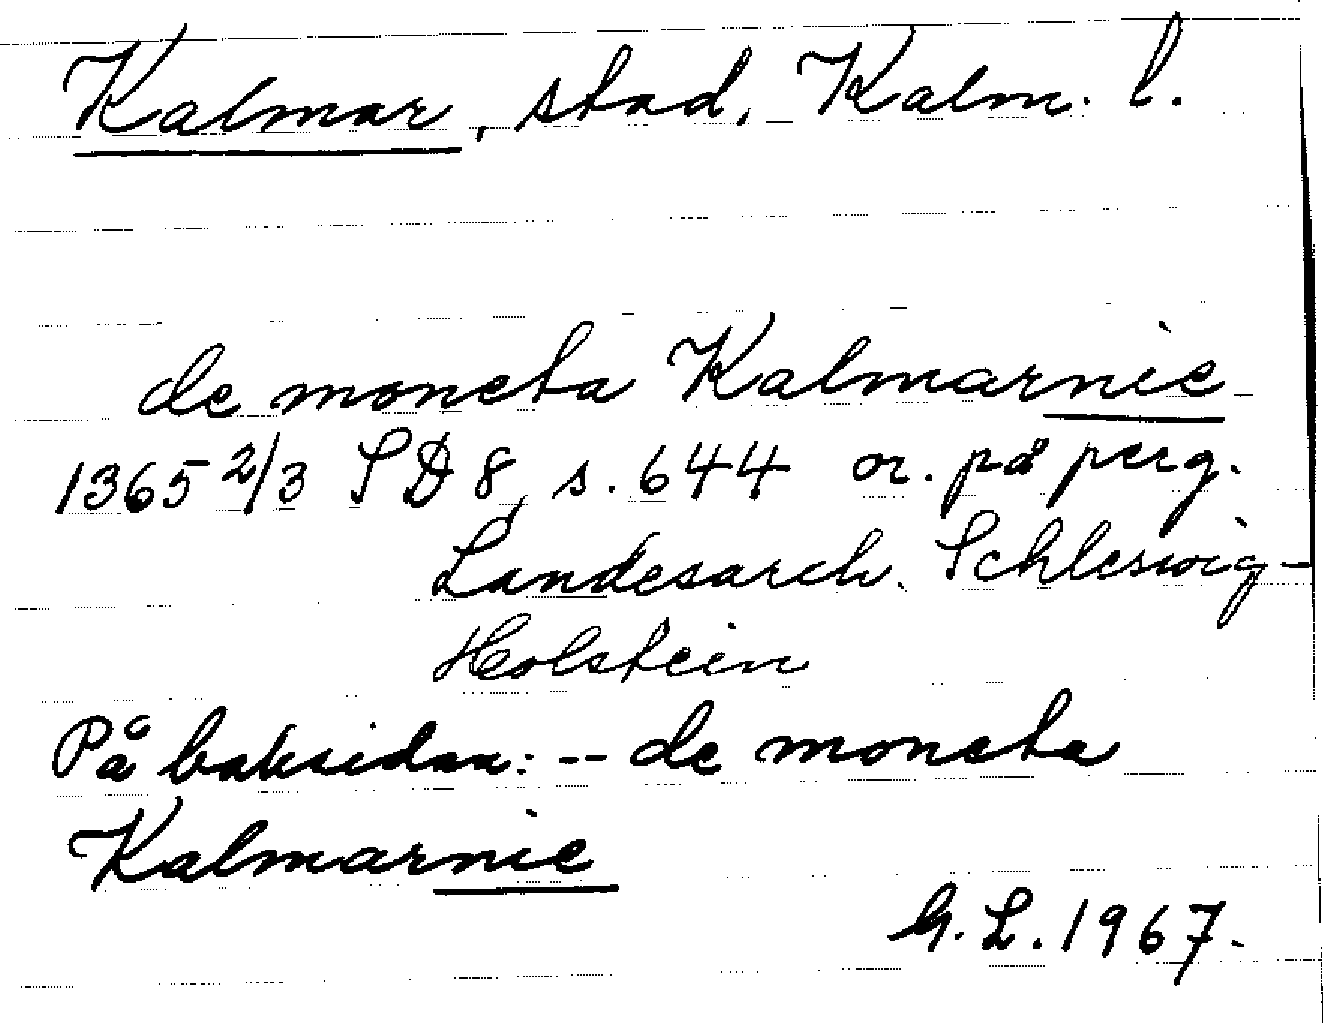 Kalmar, stad, Kalm. l.
de moneta Kalmarnie
1365 2/3 SD 8, s. 644 or. på perg.
Landesarch. Schleswig-
Holstein
På baksidan: -- de moneta
Kalmarnie
G. L. 1967.